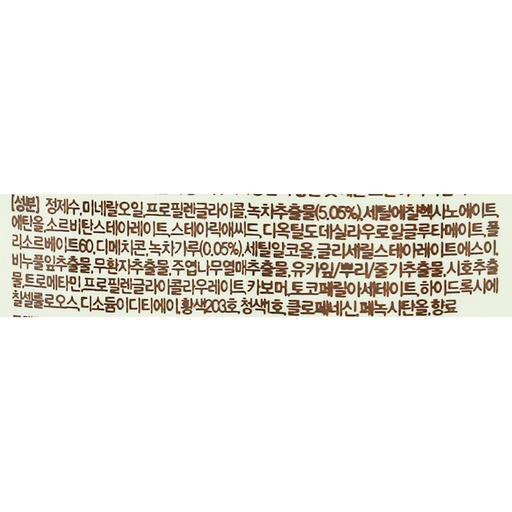 [성분] 정제수,미네랄오일,프로필렌글라이콜,녹차추출물(5.05%),세틸에칠헥사노에이트,
에탄올,소르비탄스테아레이트,스테아릭애씨드,디옥틸도데실라우로일글루타메이트,폴
리소르베이트60,디메치콘,녹차가루(0.05%),세틸알코올,글리세릴스테아레이트에스이,
비누풀잎추출물,무환자추출물,주엽나무열매추출물,유카잎/뿌리/줄기추출물,시호추출
물,트로메타민,프로필렌글라이콜라우레이트,카보머,토코페릴아세테이트,하이드록시에
칠셀룰로오스,디소듐이디티에이,황색203호,청색1호,클로페네신,페녹시탄올,향료